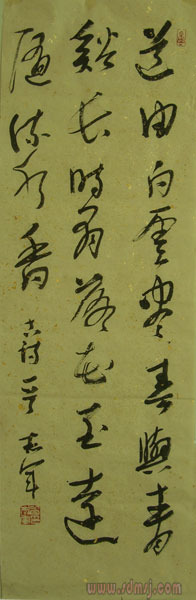 道由白雲盡春與青
谿長時有落花至遠
隨流水香 古詩一首
www.sdmsj.com